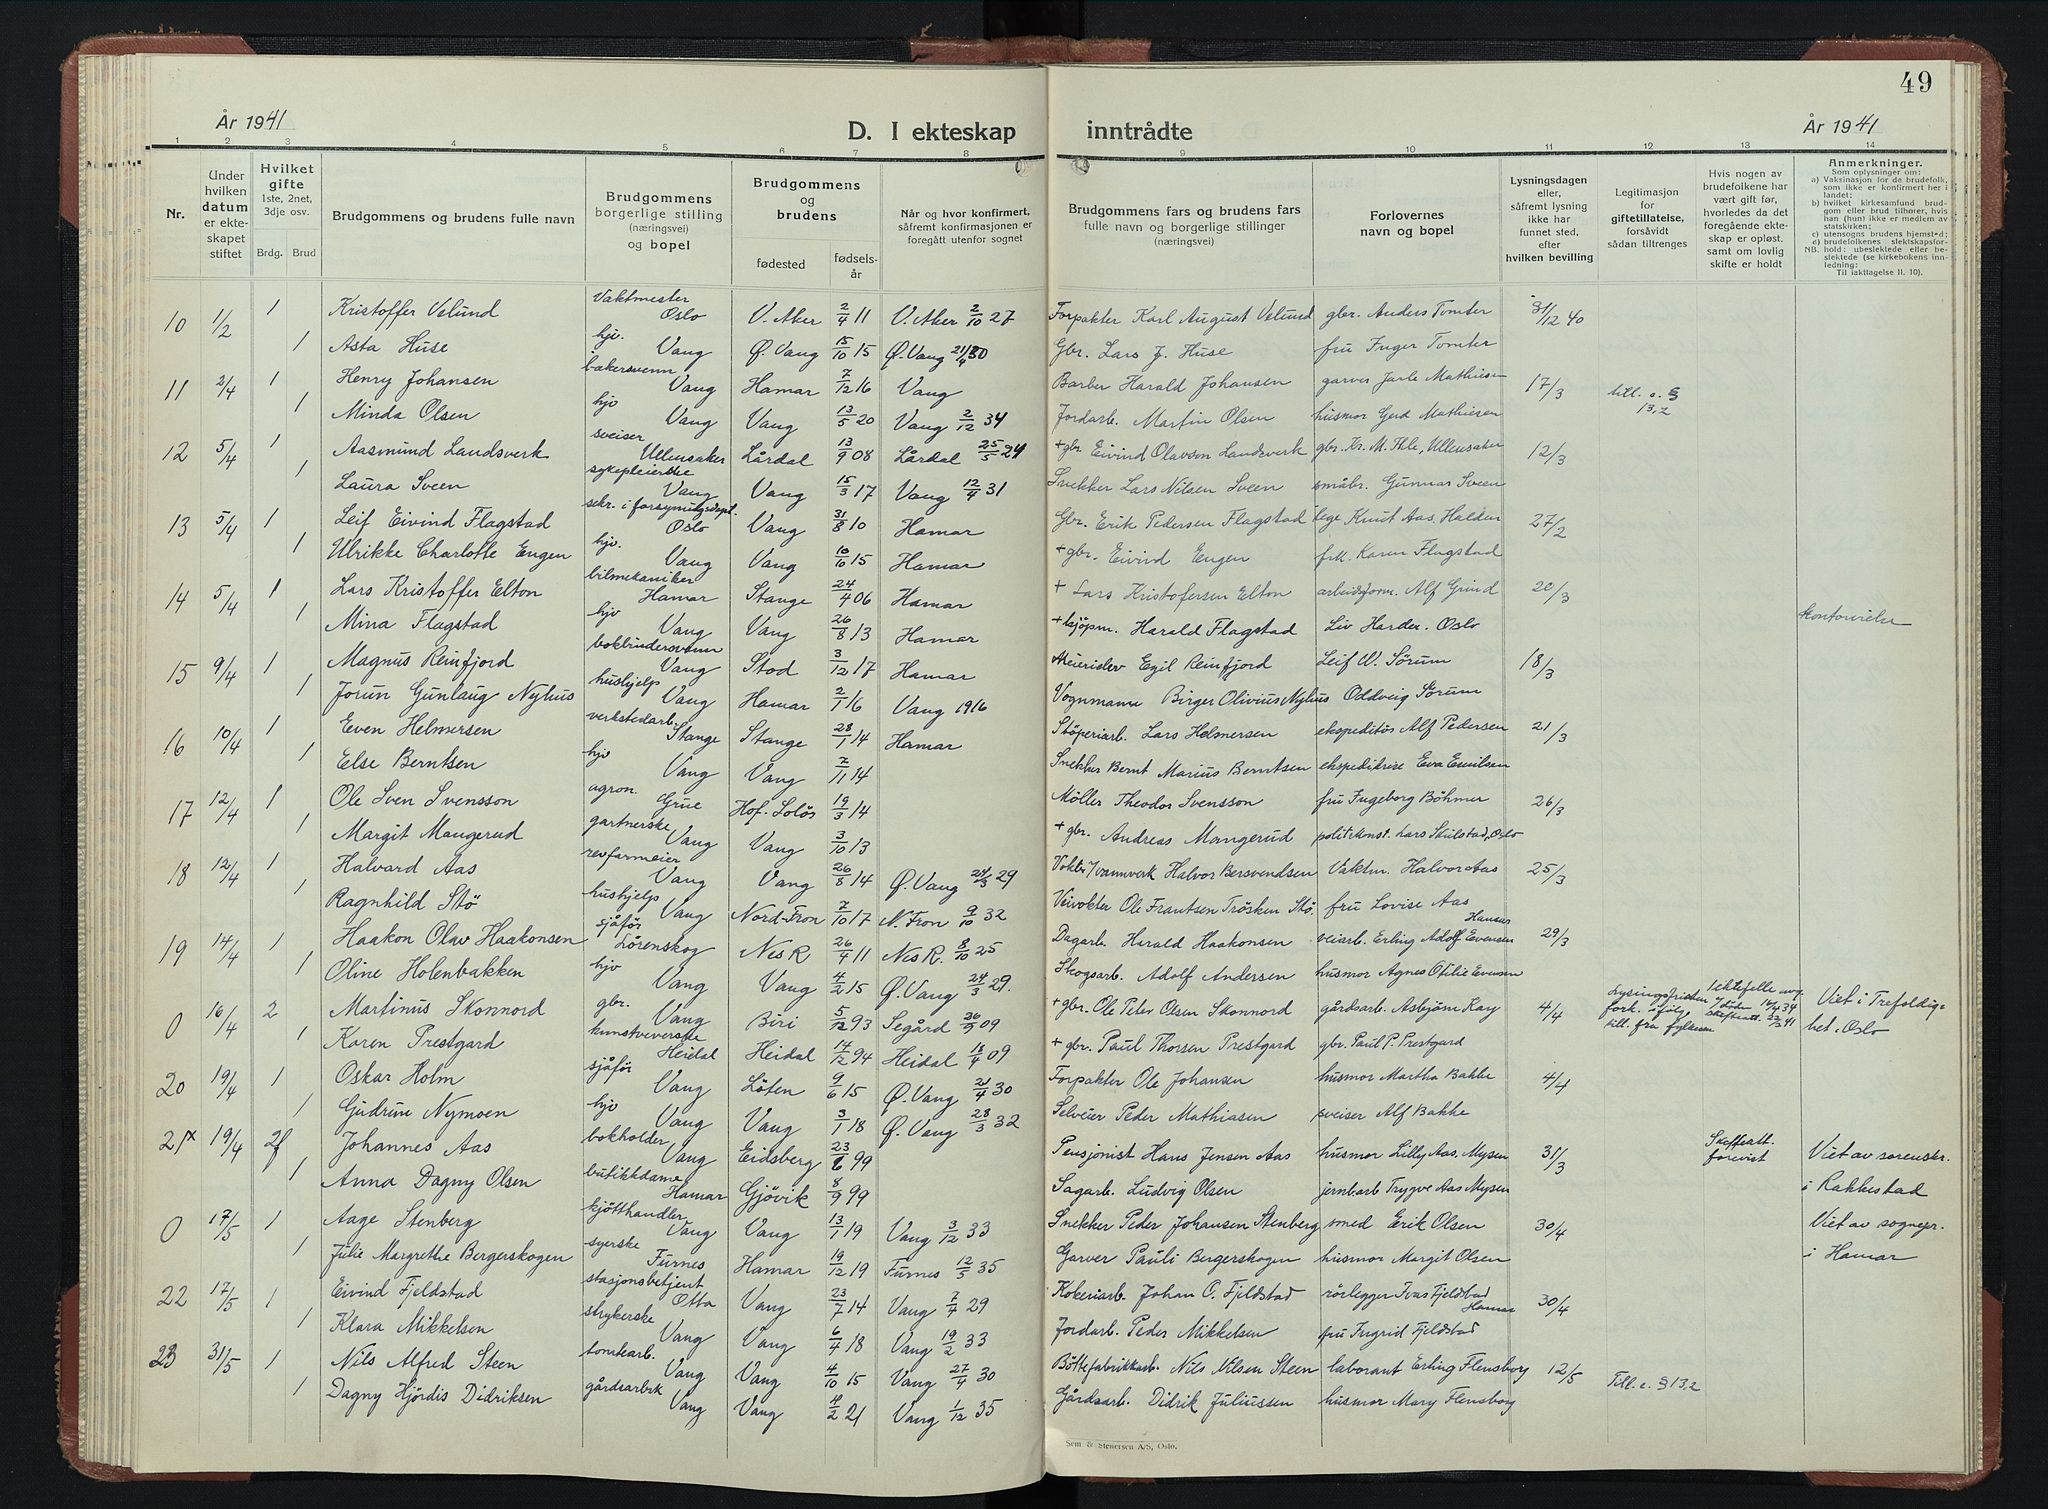 49
År 1941
D. I ekteskap inntrådte
År 1941
1 2 3 4 5 6 7 8 9 10 11 12 13 14
Nr.
Under hvilken datum er ekte-skapet stiftet
Hvilket gifte 1ste, 2net, 3dje osv. Brdg. Brud
Brudgommens og brudens fulle navn
Brudgommens borgerlige stilling (næringsvei) og bopel
Brudgommens og brudens fødested fødsels-år
Når og hvor konfirmert, såfremt konfirmasjonen er foregått utenfor sognet
Brudgommens fars og brudens fars fulle navn og borgerlige stillinger (næringsvei)
Forlovernes navn og bopel
Lysningsdagen eller, såfremt lysning ikke har funnet sted, efter hvilken bevilling
Legitimasjon for giftetillatelse, forsåvidt sådan tiltrenges
Hvis nogen av brudefolkene har vært gift før, hvorledes da det foregående ekte-skap er opløst, samt om lovlig skifte er holdt
Anmerkninger.
Som oplysninger om:
a) Vaksinasjon for de brudefolk, som ikke er konfirmert her i landet;
b) hvilket kirkesamfund brud-gom eller brud tilhører, hvis han (hun) ikke er medlem av statskirken;
c) utensogns brudens hjemsted;
d) brudefolkenes slektskapsfor-hold: ubeslektede eller be-slektede (se kirkebokens inn-ledning: Til iakttagelse II. 10).
NB.
10 1/2 1 Kristoffer Velund Vaktmester Oslo V. Aker 2/4 11 V. Aker 2/10 27 Forpakter Karl August Velund gbr. Anders Tomter 31/12 40
1 Asta Huse hjv. Vang Ø. Vang 15/10 15 Ø. Vang 21/4 30 Gbr. Lars J. Huse fru Inger Tomter
11 2/4 1 Henry Johansen bakersvenn Vang Hamar 7/12 16 Vang Barber Harald Johansen garver Jarle Mathiesen 17/3 till. e. § 13,2
1 Minda Olsen hjv Vang Vang 13/5 20 Vang 2/12 34 Jordarb. Martin Olsen husmor Gerd Mathiesen
12 5/4 1 Aasmund Landsverk sveiser Ullensaker Lårdal 13/9 08 Lårdal 25/5 24 + gbr. Eivind Olavson Landsverk gbr. Kr. M. Ihle, Ullensaker 12/3
1 Laura Sveen sykepleierske Vang Vang 15/3 17 Vang 12/4 31 Snekker Lars Nilsen Sveen småbr. Gunnar Sveen
13 5/4 1 Leif Eivind Flagstad sekr. i forsyningsdept. Oslo Vang 31/8 10 Hamar Gbr. Erik Pedersen Flagstad lege Knut Aas, Halden 27/2
1 Ulrikke Charlotte Engen hjv. Vang Vang 10/10 15 Hamar + gbr. Eivind Engen frk. Karen Flagstad
14 5/4 1 Lars Kristoffer Elton bilmekaniker Hamar Stange 24/4 06 Hamar + Lars Kristofersen Elton arbeidsform. Alf Grind 20/3
1 Mina Flagstad hjv Vang Vang 26/8 13 Hamar + kjøpm. Harald Flagstad Liv Harder. Oslo kontorvielse
15 9/4 1 Magnus Reinfjord bokbindersvenn Vang Stod 3/12 17 Hamar Meierielev Egil Reinfjord Leif W. Sørum 18/3
1 Jorun Gunlaug Nyhus hushjelp Vang Hamar 2/1 16 Vang 1916 Vognmann Birger Olivius Nyhus Oddveig Sørum
16 10/4 1 Even Helmersen verkstedarb. Stange Stange 28/1 14 Hamar Støperiarb. Lars Helmersen ekspeditør Alf Pedersen 21/3
1 Else Berntsen hjv Vang Vang 7/11 14 Snekker Bernt Marius Berntsen ekspeditrise Eva Emilsen
17 12/4 1 Ole Sven Svensson agron. Grue Hof. Solør 19/3 14 Møller Theodor Svensson fru Ingeborg Böhmer 26/3
1 Margit Mangerud gartnerske Vang Vang 3/10 13 + gbr. Andreas Mangerud politikonst. Lars Skulstad, Oslo
18 12/4 1 Halvard Aas revfarmeier Vang Vang 26/8 14 Ø. Vang 24/3 29 Vokter v/vannverk Halvor Bersvendsen Vaktm. Halvor Aas 25/3
1 Ragnhild Stø hushjelp Vang Nord-Fron 7/10 17 N. Fron 9/10 32 Veivokter Ole Frantsen Trøsken Stø. fru Lovise Aas Hamar
19 14/4 1 Haakon Olav Haakonsen sjåfør Lørenskog Nes R 26/4 11 Nes R. 8/10 25 Dagarb. Harald Haakonsen veiarb. Erling Adolf Evensen 29/3
1 Oline Holenbakken hjv Vang Vang 4/2 15 Ø. Vang 24/3 29. Skogsarb. Adolf Andersen husmor Agnes Otilie Evensen
0 16/4 2 Martinus Skonnord gbr. Vang Biri 5/12 93 Segård 26/9 09 + gbr. Ole Peter Olsen Skonnord gårdsarb. Asbjørn Kay 4/4 Lysingsfristen fork. ifølge till. fra fylkesm 1. ektefelle avg. v/død 16/4 34 skifteatt. 22/3 41 Viet i Trefoldig-
Karen Prestgard kunstveverske Heidal Heidal 14/12 94 Heidal 18/4 09 + gbr. Paul Thorsen Prestgard gbr. Paul P. Prestgard het. Oslo
20 19/4 1 Oskar Holm sjåfør Vang Løten 9/6 15 Ø. Vang 21/4 30 Forpakter Ole Johansen husmor Martha Bakke 4/4
1 Gudrun Nymoen hjv Vang Vang 3/1 18 Ø. Vang 28/3 32 Selveier Peder Mathiasen sveiser Alf Bakke
21x 19/4 2f Johannes Aas bokholder Vang Eidsberg 23/6 99 Pensjonist Hans Jensen Aas husmor Lilly Aas, Mysen 31/3 Skifteatt. forevist Viet av sorenskr.
1 Anna Dagny Olsen butikkdame Hamar Gjøvik 8/9 99 Sagarb. Ludvig Olsen jernbarb Trygve Aas Mysen i Rakkestad
0 17/5 1 Aage Stenberg kjøtthandler Vang Vang 13/1 19 Vang 3/12 33 Snekker Peder Johansen Stenberg smed Erik Olsen 30/4 Viet av sognepr.
1 Julie Margrethe Bergerskogen syerske Furnes Hamar 19/12 19 Furnes 12/5 35 Garver Pauli Bergerskogen husmor Margit Olsen i Hamar
22 17/5 1 Eivind Fjeldstad stasjonsbetjent Otta Vang 23/7 14 Vang 7/4 29 Kokeriarb. Johan O. Fjeldstad rørlegger Ivar Fjeldstad Hamar 30/4
1 Klara Mikkelsen strykerske Vang Vang 6/4 18 Vang 19/2 33 Jordarb. Peder Mikkelsen fru Ingrid Fjeldstad
23 31/5 1 Nils Alfred Steen tomtearb. Vang Vang 4/10 15 Vang 27/4 30 Bøttefabrikkarb. Nils Nilsen Steen laborant Erling Flensborg 12/5 Till. e. § 13,2
1 Dagny Hjørdis Didriksen gårdsarbk Vang Vang 4/2 21 Vang 1/12 35 Gårdsarb. Didrik Juliussen husmor Mary Flensborg
Sem & Stenersen A/S, Oslo.